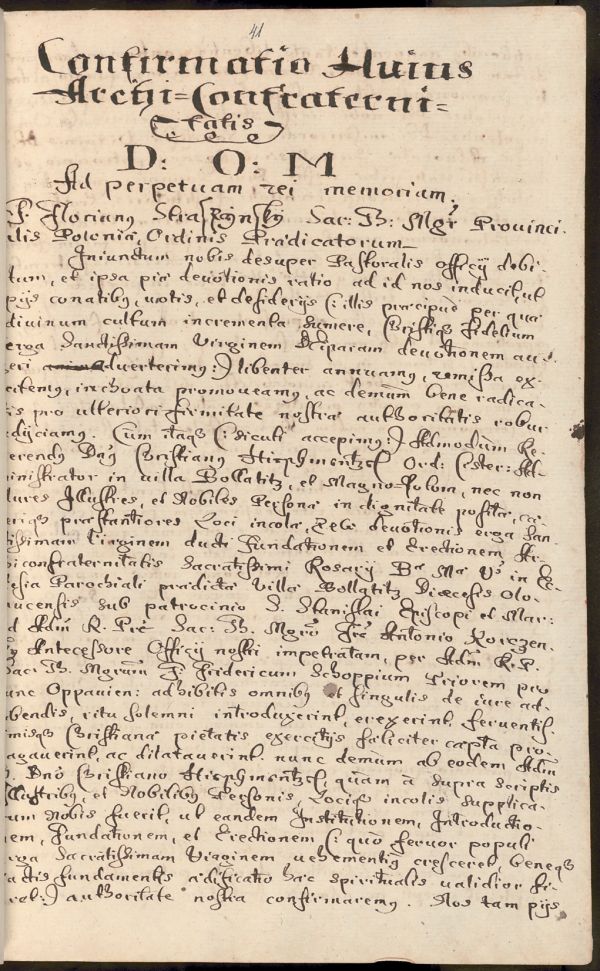 41
Confirmatio Huius
Archi=Confraterni=
tatis
D: O: M
Ad perpetuam rei memoriam.
F. Florianus Sac: Th: Mgr Provinci-
alis Poloniæ, Ordinis Prædicatorum
Iniunctum nobis desuper Pastoralis officij debi-
tum, et ipsa piæ devotionis ratio ad id nos inducit, ut
pijs conatibus, votis, et desiderijs (: illis præcipuè per quæ
divinum cultum incrementa sumere, Christiq3 fidelium
erga Sanctissimam Virginem Deiparam devotionem au-
geri adverterimus:) libenter annuamus, remissa ex-
citemus, inchoata promoveamus, ac demum bene radica-
tis pro ulteriori firmitate nostræ authoritatis robur
adijciamus. Cum itaq3 (: sicuti accepimus:) Admodum Re-
verendus Dnus Christianus Ord: Cister: Ad-
ministrator in villa Bollatitz, et Magno=Polom, nec non
plures Illustres, et Nobiles Personæ in dignitate positæ, cæ-
teriq3 præstantiores Loci incolæ, Zelo devotionis erga San-
ctissimam Virginem ducti Fundationem et Erectionem Ar-
chiconfraternitatis Sacratissimi Rosarij Bæ Mæ Vis in Ec-
clesia Parochiali prædictæ Villæ Bollatitz Diæcesis Olo-
mucensis sub patrocinio S. Stanislai Episcopi et Mar:
Adm R. Pre Sac: Th. Mgro Fre Antonio
Antecessore Officij nostri impetratam, per Adm R. P.
Sac: Th. Mgrum F. Fridericum Schoppium Priorem pro
tunc Oppavien: adhibitis omnibus et singulis de iure ad-
hibendis, ritu solemni introduxerint, erexerint, ferventis-
simisq3 Christianæ pietatis exercitijs fæliciter cæpta pro-
pagaverint, ac dilataverint. nunc demum ab eodem Adm
R. Dno Christiano quàm à supra scriptis
Illustribus, et Nobilibus Personis, Lociq3 incolis supplica-
tum Nobis fuerit, ut eandem Institutionem, Introductio-
nem, Fundationem, et Erectionem (: quò fervor populi
erga Sacratissimam Virginem vehementius cresceret, beneq3
iactis fundamentis ædificatio hæc spiritualis validior fi-
eret:) authoritate nostra confirmaremus. Nos tam pijs